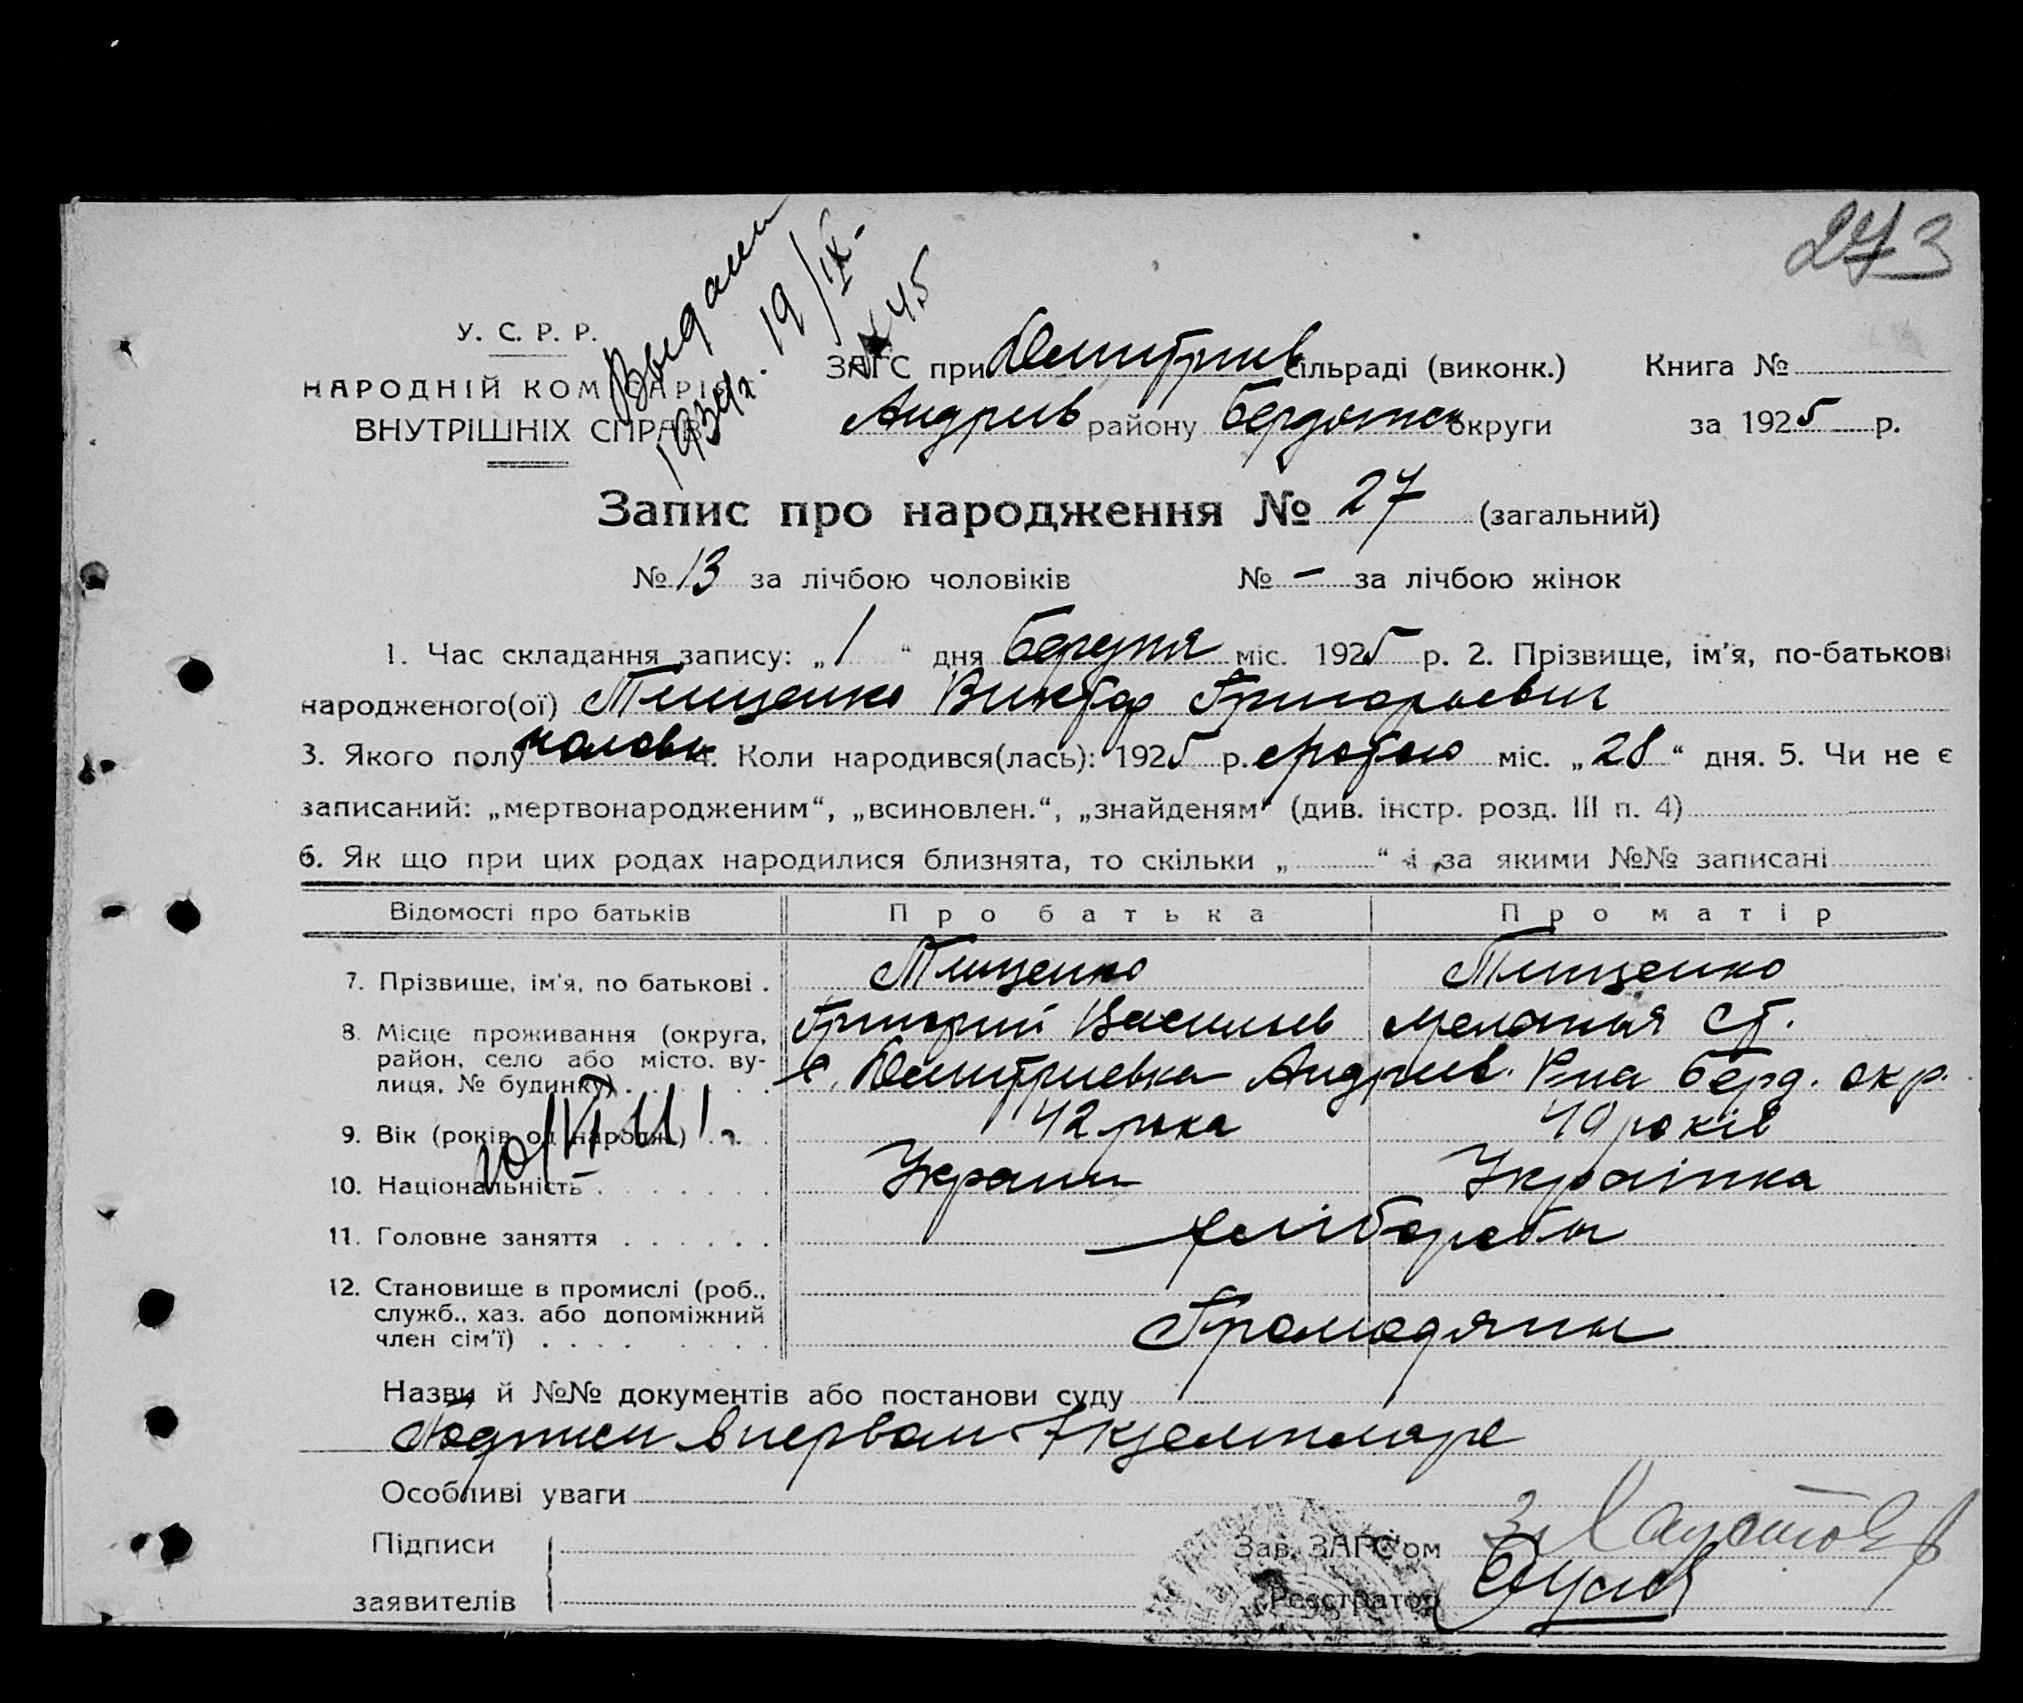 273
Выдано
1934 г. 19/IX.
№ 45
У. С. Р. Р.
НАРОДНІЙ КОМІСАРІЯТ
ВНУТРІШНІХ СПРАВ
ЗАГС при Дмитрив сільраді (виконк.) Книга №
Андрив району Бердянськ округи за 1925 р.
Запис про народження № 27 (загальний)
№ 13 за лічбою чоловіків № – за лічбою жінок
1. Час складання запису: „1“ дня березня міс. 1925 р. 2. Прізвище, ім'я, по-батькові
народженого(ої) Тищенко Виктор Григорьевич
3. Якого полу чолові 4. Коли народився(лась): 1925 р. лютого міс. „28“ дня. 5. Чи не є
записаний: „мертвонародженим“, „всиновлен.“, „знайденям“ (див. інстр. розд. III п. 4)
6. Як що при цих родах народилися близнята, то скільки „ “ і за якими №№ записані
Відомості про батьків Про батька Про матір
7. Прізвище, ім'я, по батькові . Тищенко Тищенко
Григорий Васильев Меланья Ст.
8. Місце проживання (округа,
район, село або місто, ву-
лиця, № будинку) . с. Дмитриевка Андрив. Р-на Берд. окр.
9. Вік (років од народж.) . 42 рока 40 років
10. Національність . Украин Українка
11. Головне заняття . хліборобы
12. Становище в промислі (роб.,
служб., хаз. або допоміжний
член сім'ї) . Громадяны
Назви й №№ документів або постанови суду
Подписи в первом экземпляре
Особливі уваги
Підписи
заявителів
Зав. ЗАГС'ом
Реєстратор